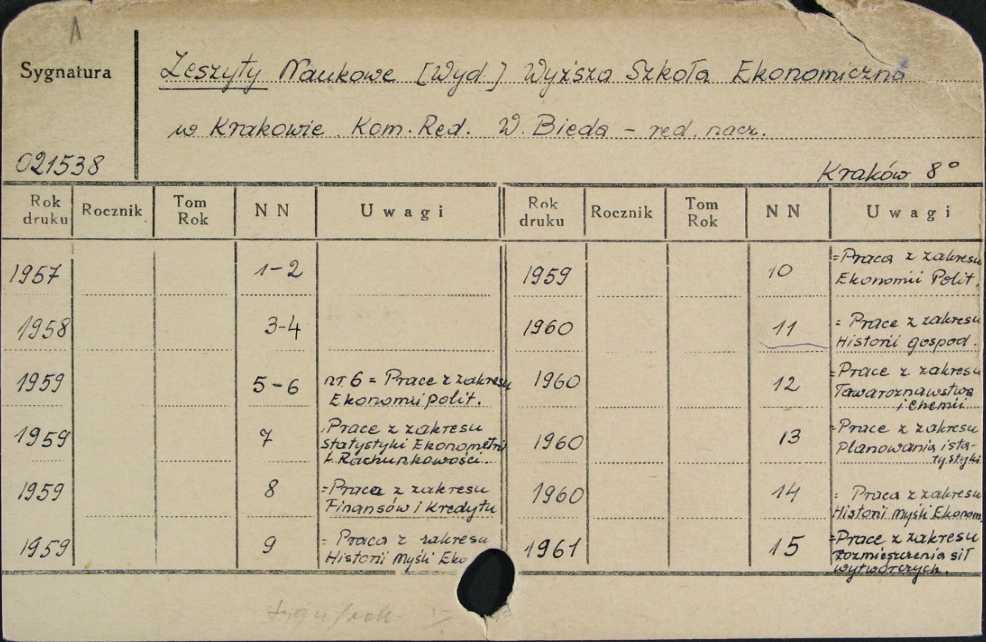 Sygnatura
Zeszyty Naukowe [Wyd.] Wyższa Szkoła Ekonomiczna
w Krakowie. Kom. Red. W. Bieda - red. nacz.
021538
Kraków 8°
Rok druku Rocznik Tom Rok NN Uwagi Rok druku Rocznik Tom Rok NN Uwagi
1957 1-2
1959 10 = Praca z zakresu
Ekonomii Polit.
1958 3-4
1960 11 = Prace z zakresu
Historii gospod.
1959 5-6 nr 6 = Prace z zakresu
Ekonomii polit.
1960 12 = Prace z zakresu
Towaroznawstwa
i chemii
1959 7 Prace z zakresu
Statystyki Ekonometrii
i Rachunkowości.
1960 13 = Prace z zakresu
Planowania i sta-
tystyki
1959 8 = Praca z zakresu
Finansów i Kredytu
1960 14 = Praca z zakresu
Historii Myśli Ekonom.
1959 9 = Praca z zakresu
Historii Myśli Eko
1961 15 = Prace z zakresu
rozmieszczenia sił
wytwórczych.